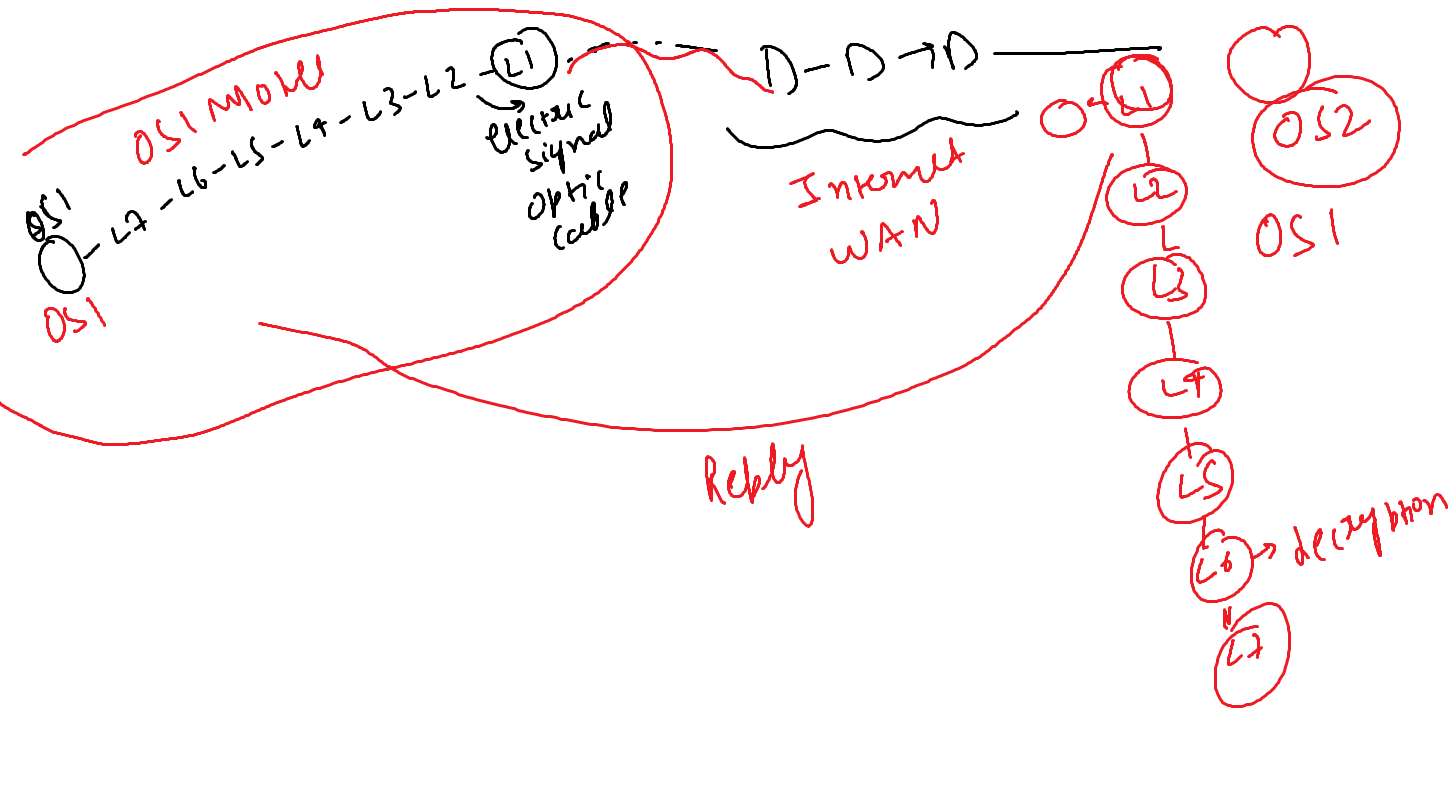 OSI Model
OS1
OS1
L7 - L6 - L5 - L4 - L3 - L2 - L1
electric
signal
optic
cable
D - D → D
Internet
WAN
L1
L2
L
L3
L4
L5
L6 → decryption
L7
OS2
OS1
Reply